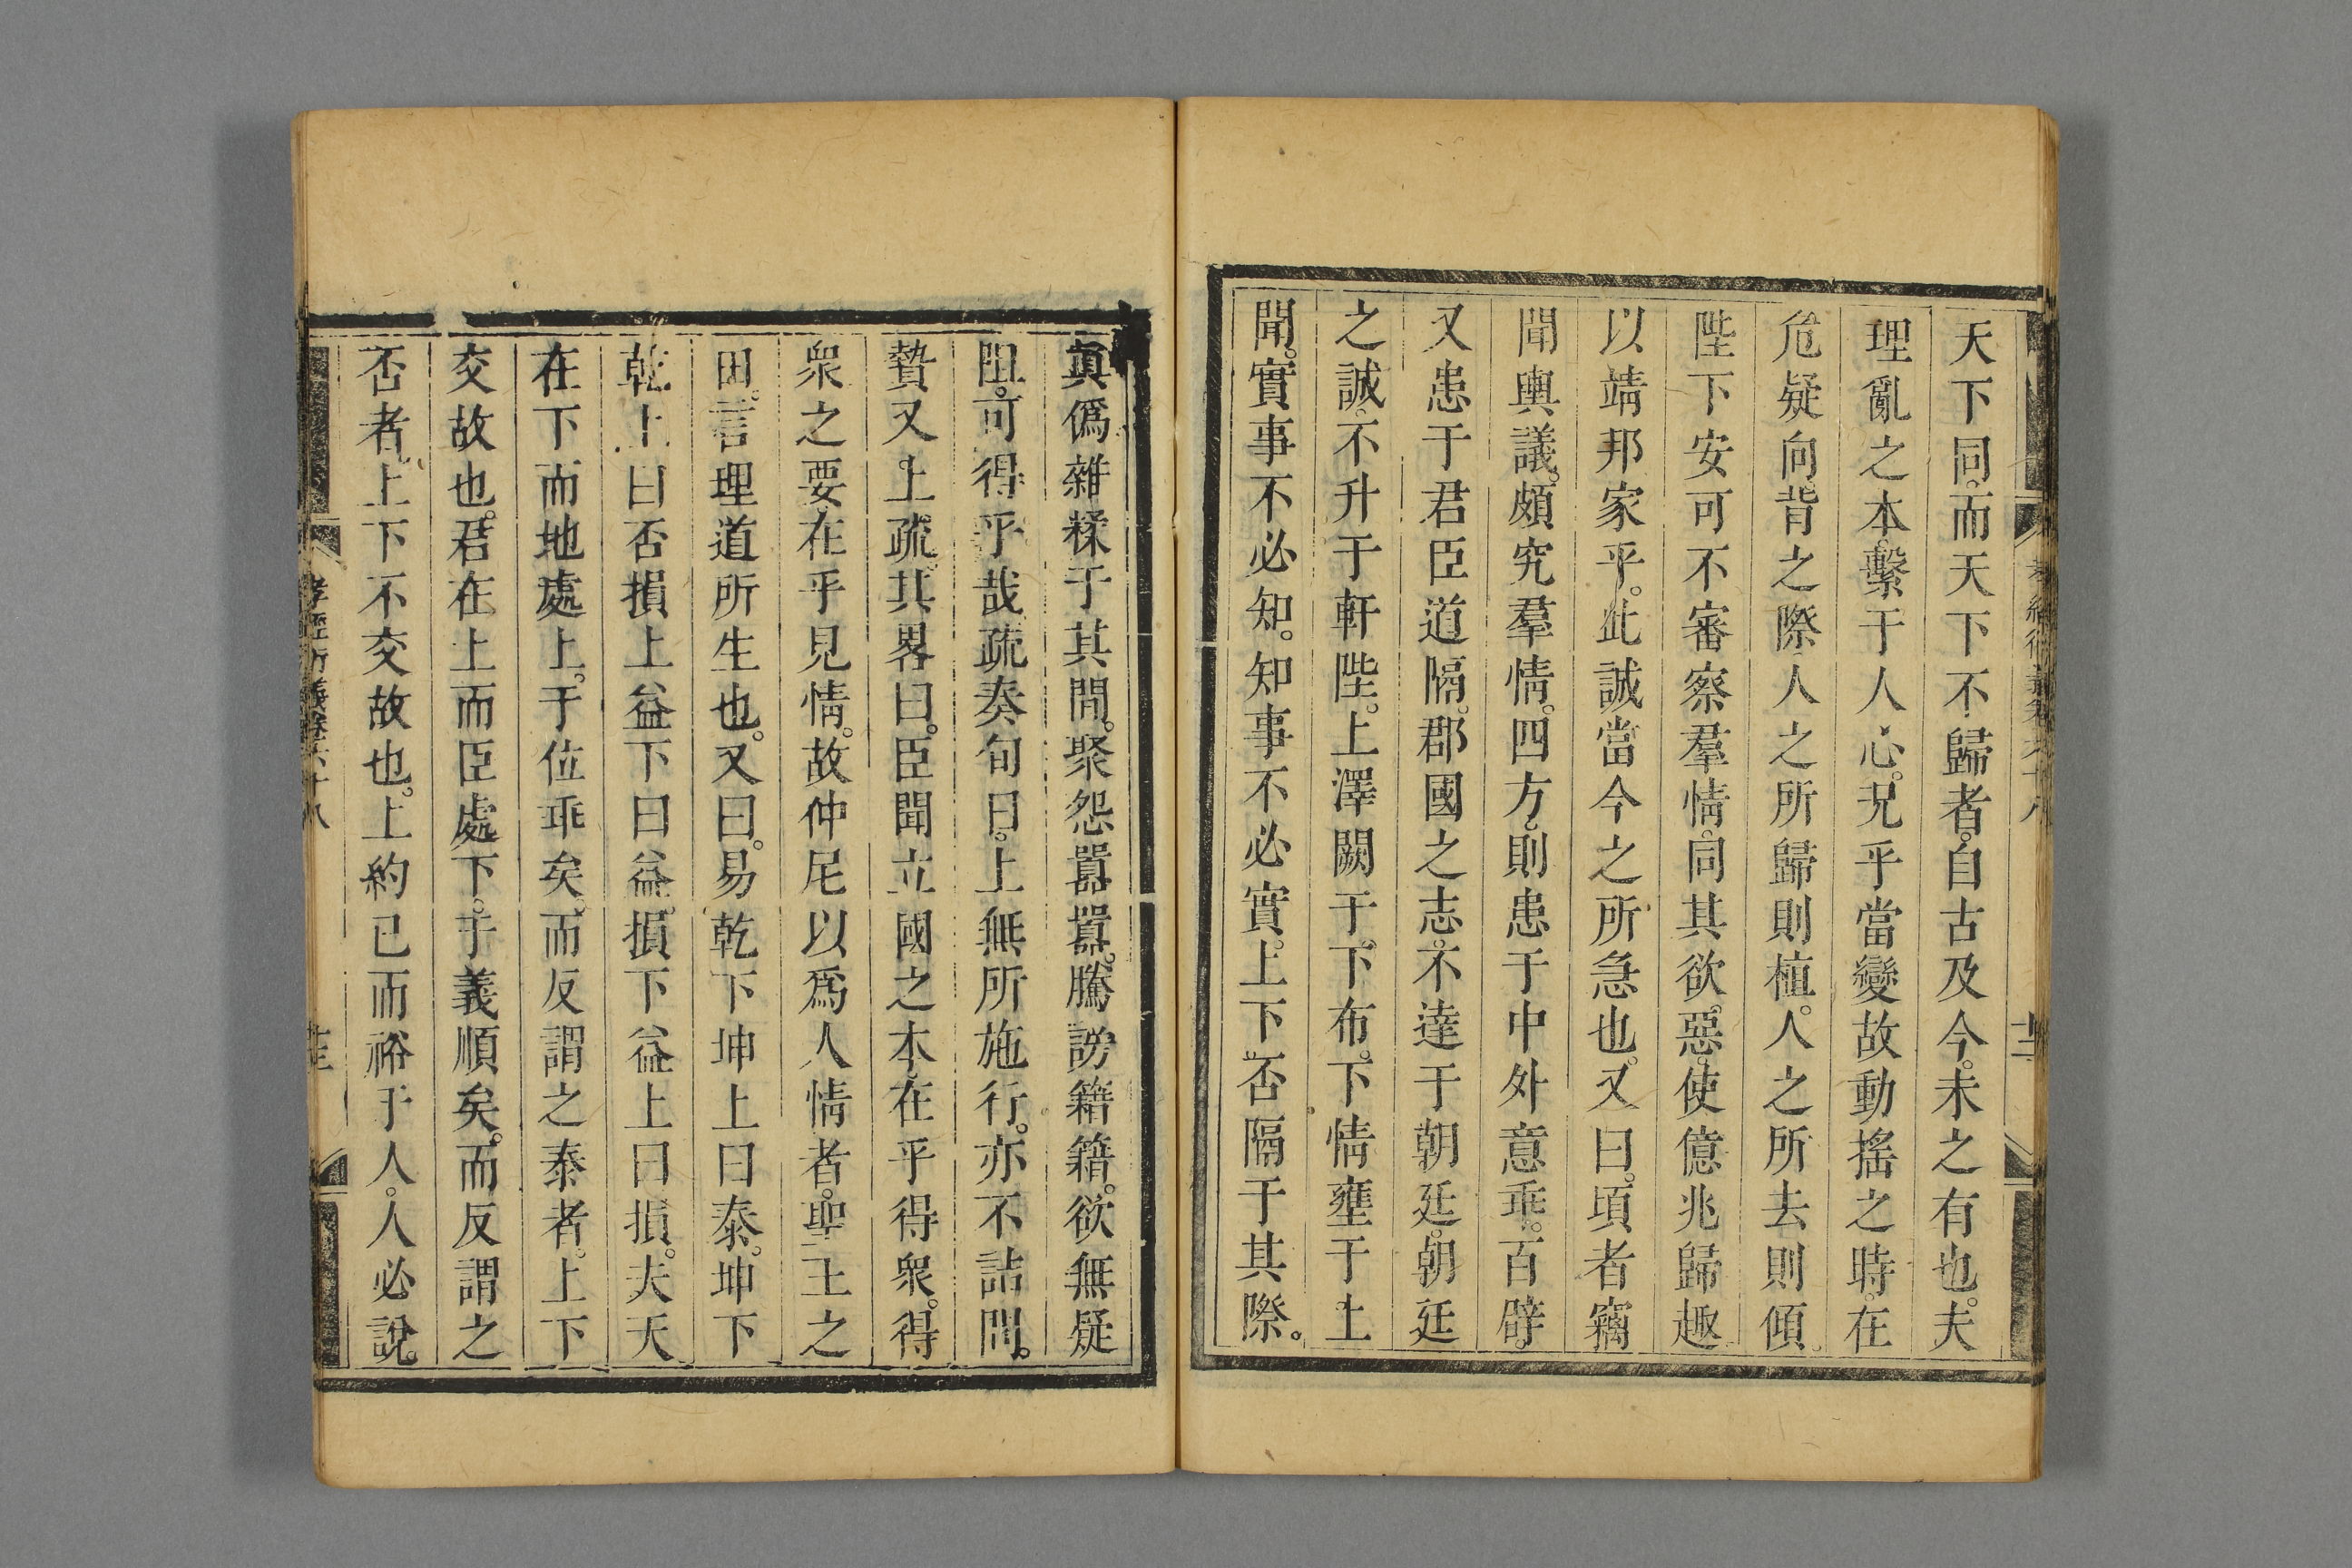 天下同。而天下不歸者。自古及今。未之有也。夫
理亂之本。繫于人心。况乎當變故動搖之時。在
危疑向背之際。人之所歸則植。人之所去則傾。
陛下安可不審察羣情。同其欲惡。使億兆歸趣
以靖邦家乎。此誠當今之所急也。又曰。頃者竊
聞輿議。頗究羣情。四方。則患于中外意乖。百辟。
又患于君臣道隔。郡國之志。不達于朝廷。朝廷
之誠。不升于軒陛。上澤闕于下布。下情壅于上
聞。實事不必知。知事不必實。上下否隔于其際。
真僞雜糅于其間。聚怨囂囂。騰謗籍籍。欲無疑
阻。可得乎哉。疏奏旬日。上無所施行。亦不詰問。
贄又上疏。其畧曰。臣聞立國之本。在乎得衆。得
衆之要。在乎見情。故仲尼以爲人情者。聖王之
田。言理道所生也。又曰。易乾下坤上曰泰。坤下
乾上曰否。損上益下曰益。損下益上曰損。夫天
在下而地處上。于位乖矣。而反謂之泰者。上下
交故也。君在上而臣處下。于義順矣。而反謂之
否者。上下不交故也。上約已而裕于人。人必說。
孝經衍義卷六十八